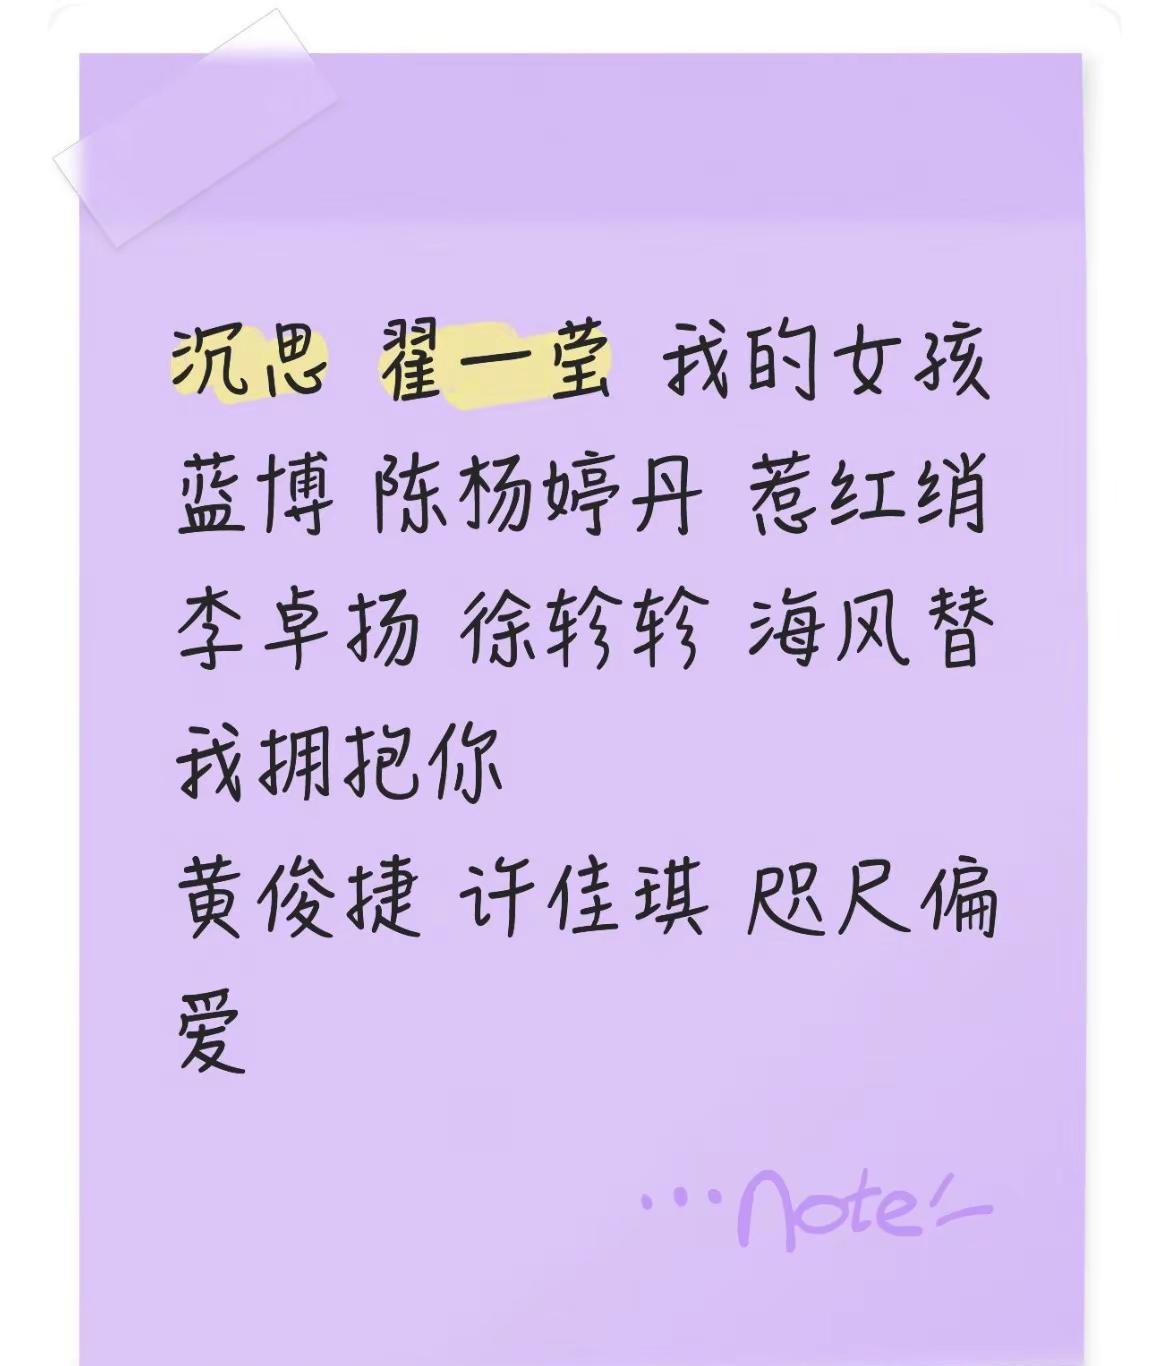 沉思 翟一莹 我的女孩
蓝博 陈杨婷丹 惹红绡
李卓扬 徐轸轸 海风替
我拥抱你
黄俊捷 许佳琪 咫尺偏
爱
...Note!